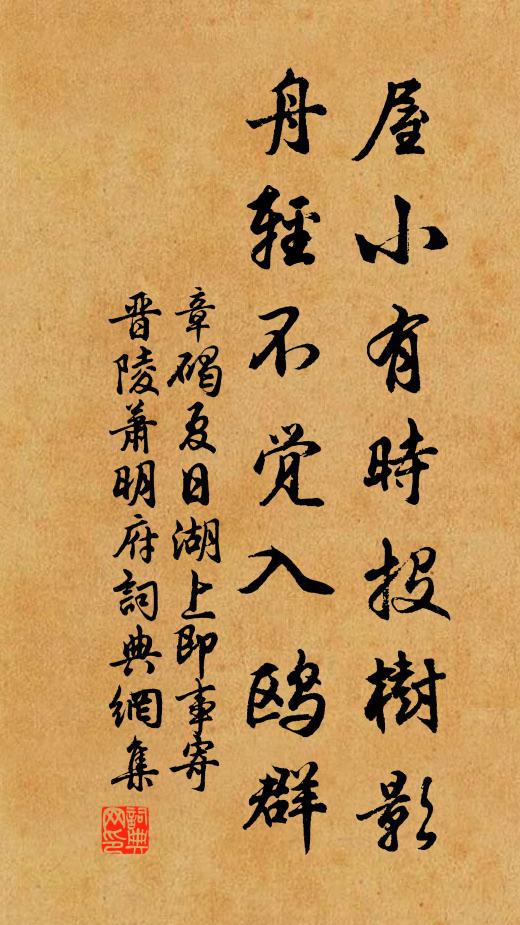 屋小有時投樹影
舟輕不觉入鸥群
章碣夏日湖上即事寄
晋陵蕭明府詞典網集
詞典网印